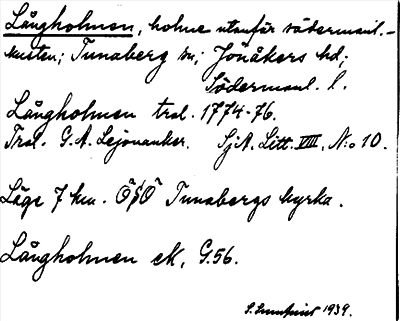 Långholmen, holme utanför södermanl.-
kusten; Tunaberg sn; Jönåkers hd;
Södermanl. l.
Långholmen trol. 1774-76.
Trol. G.A. Lejonanker. SjA. Litt. VIII, N:o 10.
Läge 7 km. ÖSÖ Tunabergs kyrka.
Långholmen eK, G.56.
S. 1939.